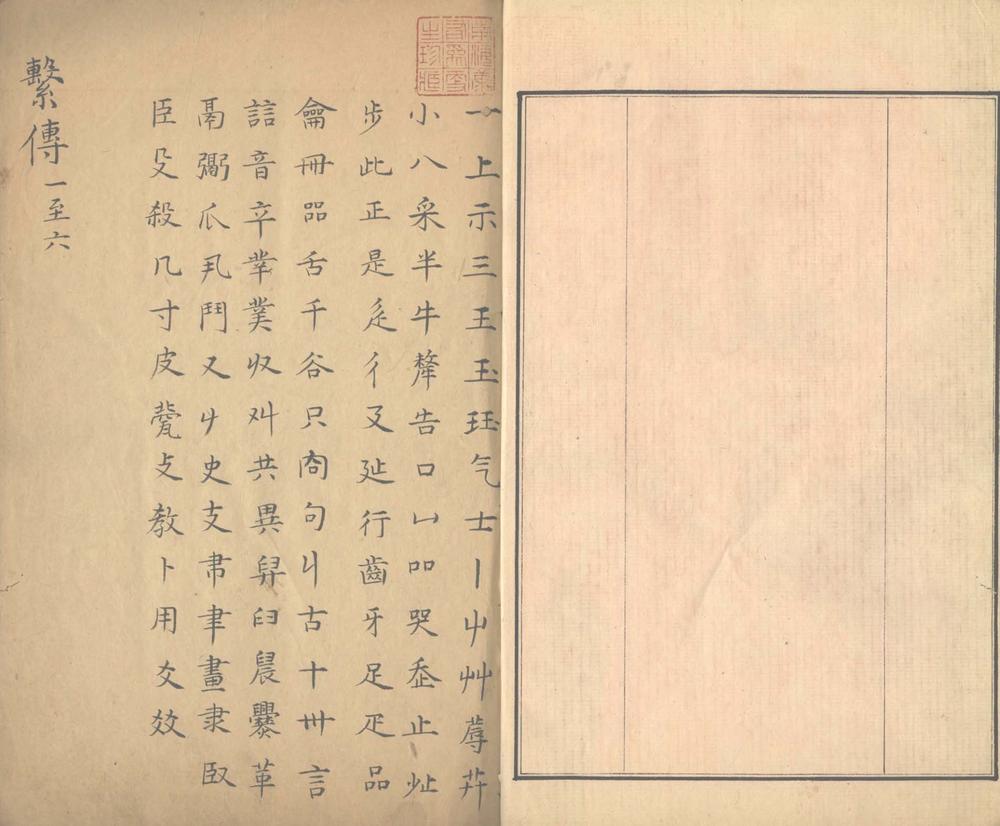 南海康
有為更
生珍藏
一上示三王玉珏气士丨屮艸蓐茻
小八釆半牛犛告口凵吅哭走止癶
步此正是辵彳廴㢟行齒牙足疋品
龠冊㗊舌干谷只㕯句丩古十卅言
誩音䇂丵菐収𠬜共異舁臼晨爨革
鬲䰜爪丮鬥又𠂇史支𦘒聿畫隶臤
臣殳殺几寸皮㼱攴教卜用爻㸚
繫傳一至六